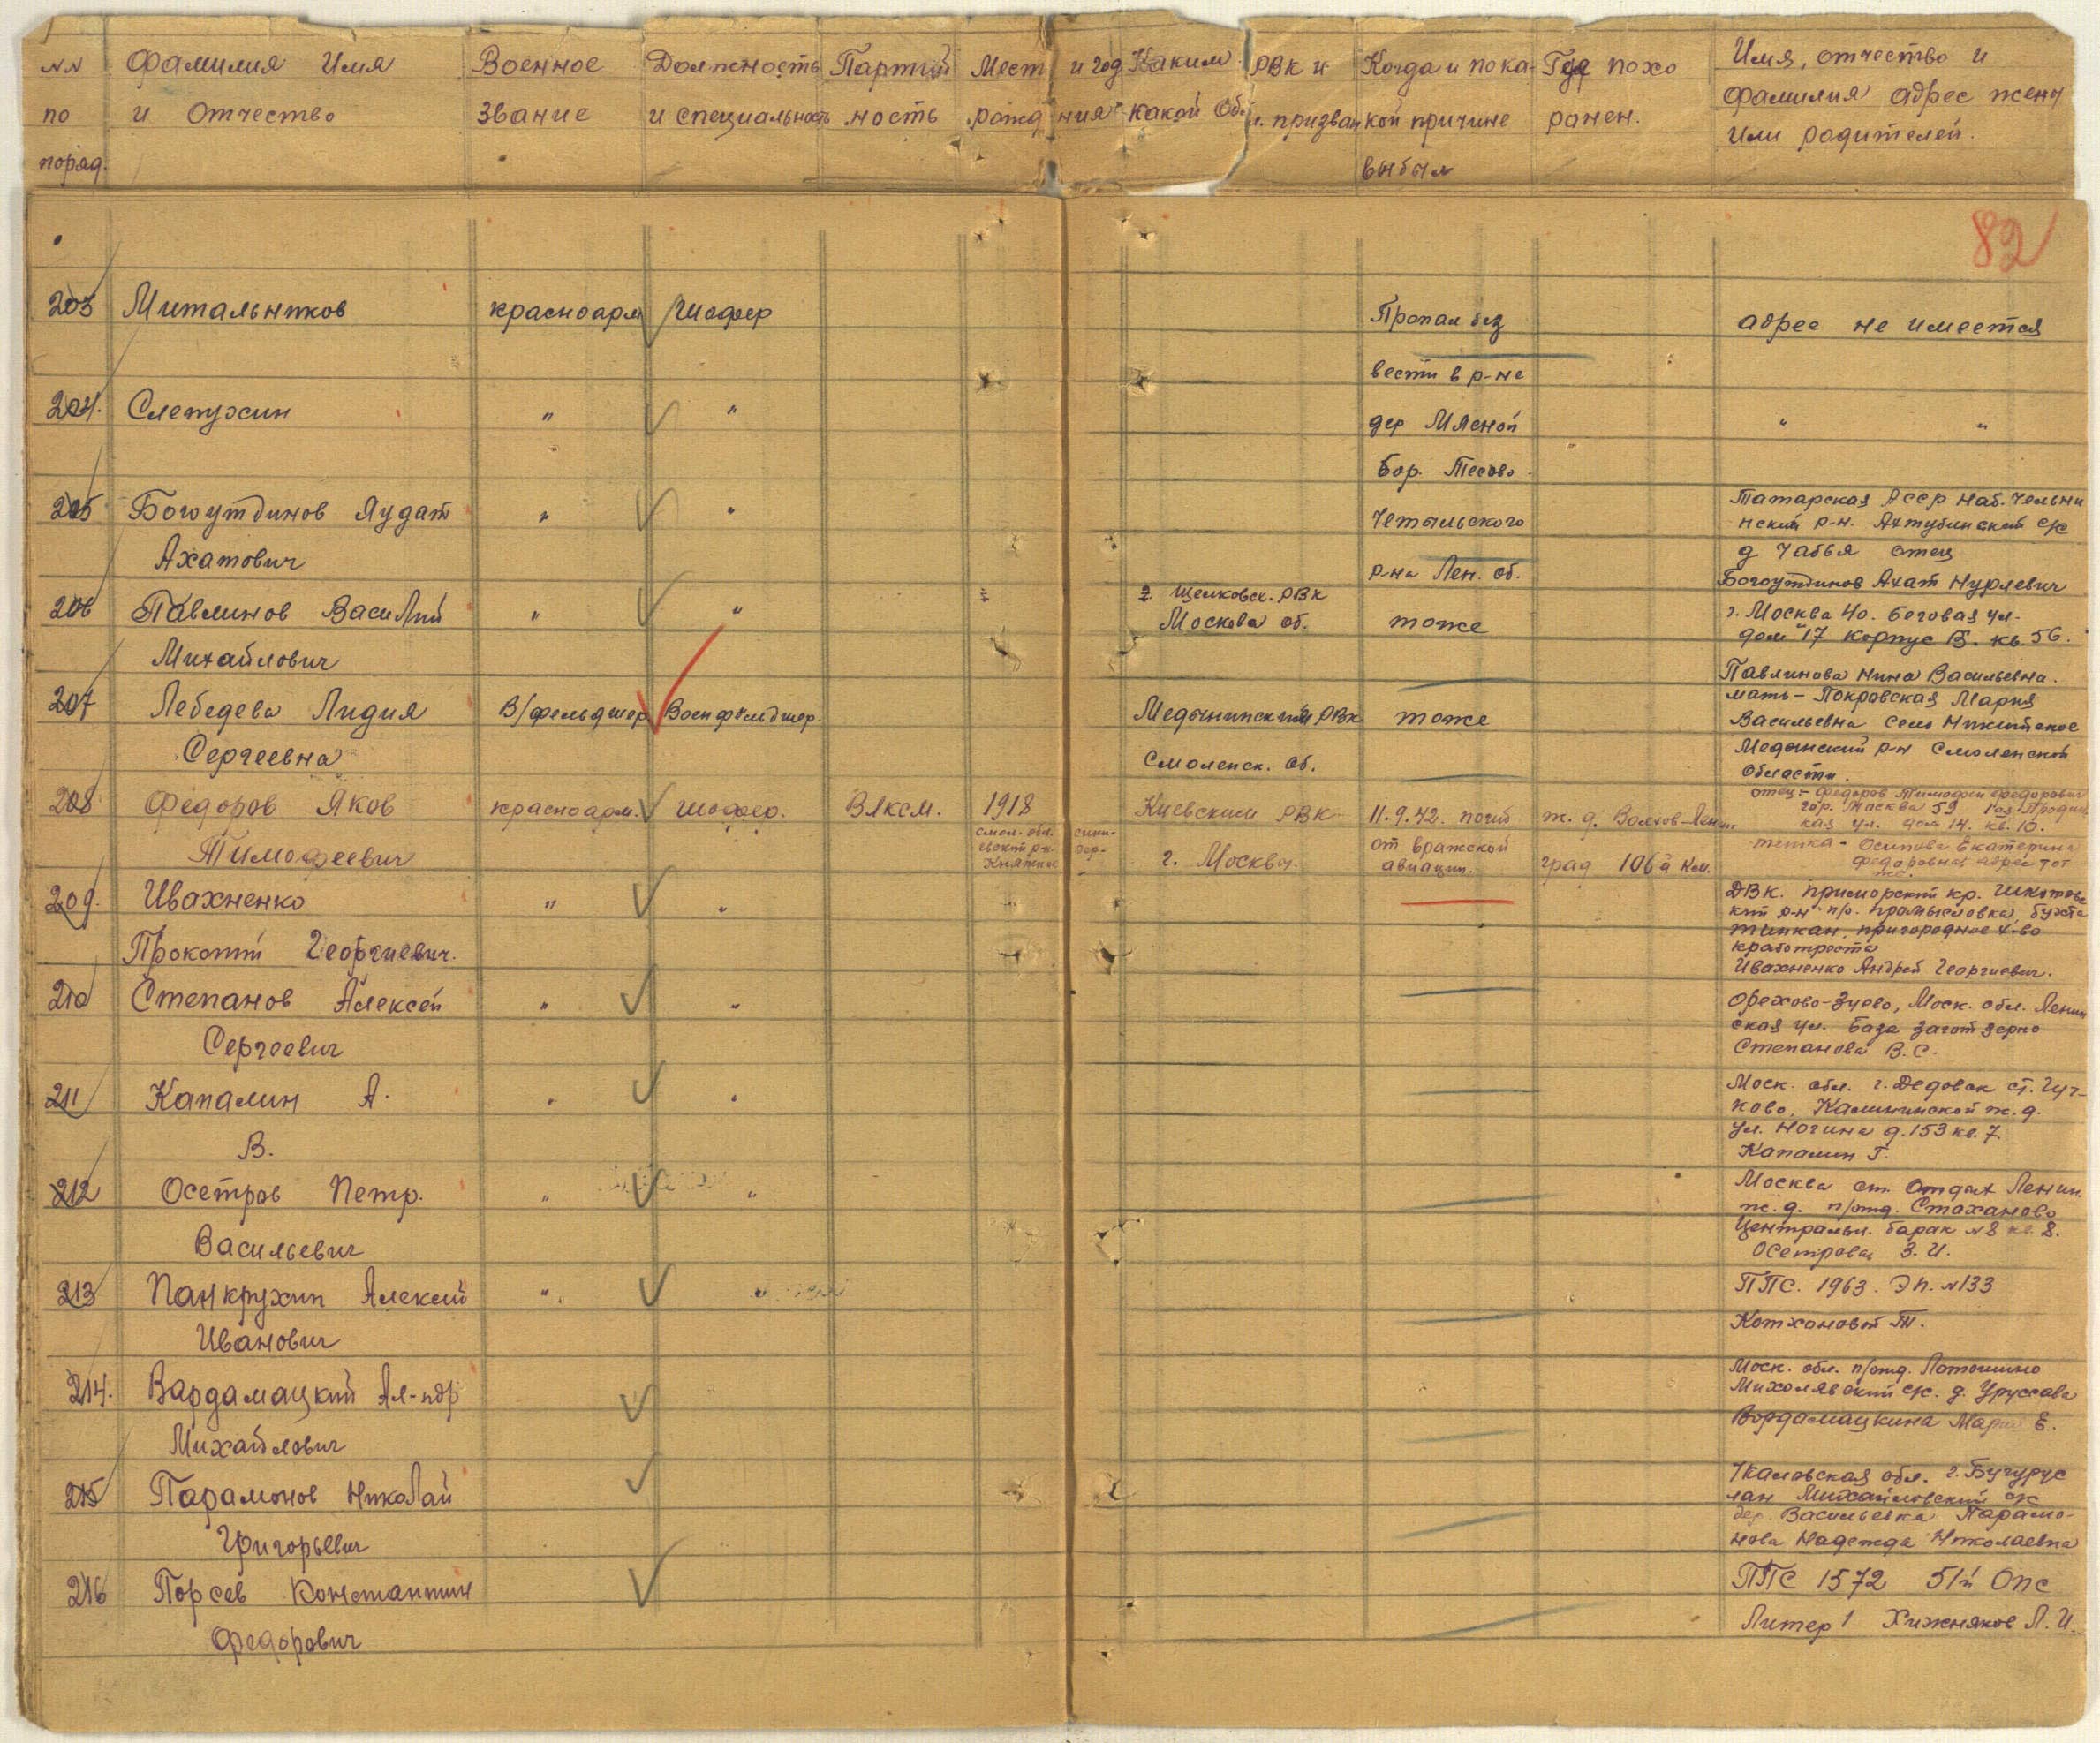 NN по поряд.
Фамилия Имя и Отчество
Военное звание
Должность и специальность
Партий ность
Мест и год рожд ния
Каким РВК и какой Об. призван
Когда и по какой причине выбыл
Где похо ранен.
Имя, отчество и фамилия адрес жены или родителей.
82
203 Митальников красноарм шофер Пропал без адрес не имеется
вести в р-не
204. Слепухин " " дер Мясной " "
Бор. Тесово
205 Богоутдинов Аудат " " Четыльского Татарская АССР Наб. Челни
нский р-н. Ахтубинский с/с
Ахатович р-на Лен. об. д Чабья отец
Богоутдинов Ахат Нурлевич
206 Павлинов Василий " " г. Щелковск. РВК
Москова об. тоже г. Москва 40. Беговая ул.
дом 17 корпус В. кв. 56.
Михайлович Павлинова Нина Васильевна.
207 Лебедева Лидия В/фельдшер Военфельдшер. Медынинский РВК тоже мать - Покровская Мария
Васильевна село Никитское
Сергеевна Смоленск. об. Медынский р-н Смоленской
области.
208 Федоров Яков красноарм. шофер. ВЛКСМ. 1918 Киевским РВК 11.9.42. погиб ж. д. Волхов-Лен отец - Федоров Тимофей Федорович
гор. Москва 59
кая ул. дом 14. кв. 10.
Тимофеевич смол. обл. г. Москвы. от вражской авиации. град 106й км. тетка - Осипова Екатерина
Федоровна адрес тот же.
209. Ивахненко " " ДВК. приморский кр. Шкотовс
кий р-н п/о. промысловка, бухта
Прокопий Георгиевич. тинкан, пригородное х-во
кработреста
Ивахненко Андрей Георгиевич.
210 Степанов Алексей " " Орехово-Зуево, Моск. обл. Ленин
ская ул. База Заготзерно
Сергеевич Степанова В. С.
211 Капалин А. " " Моск. обл. г. Дедовск ст. Гуч-
ково, Калининской ж. д.
В. ул. Ногина д. 153 кв. 7.
Капалин Г.
212 Осетров Петр. " " Москва ст. Отдых Ленин.
ж. д. п/отд. Стаханово
Васильевич Централь. барак N8 кв. 8.
Осетрова З. И.
213 Панкрухин Алексей " " ППС. 1963. Эп. N133
Иванович Котхоновой Т.
214. Вардамацкий Ал-ндр Моск. обл. п/отд. Лотошино
Михолявский с/с. д. Урусова
Михайлович Вордамацкина Мария Е.
215 Парамонов Николай Чкаловская обл. г. Бугурус
лан Михайловский с/с
Григорьевич дер. Васильевка Парамо-
нова Надежда Николаевна
216 Порсев Константин ППС 1572 51й Опс
Федорович Литер 1 Хижняков Л. И.